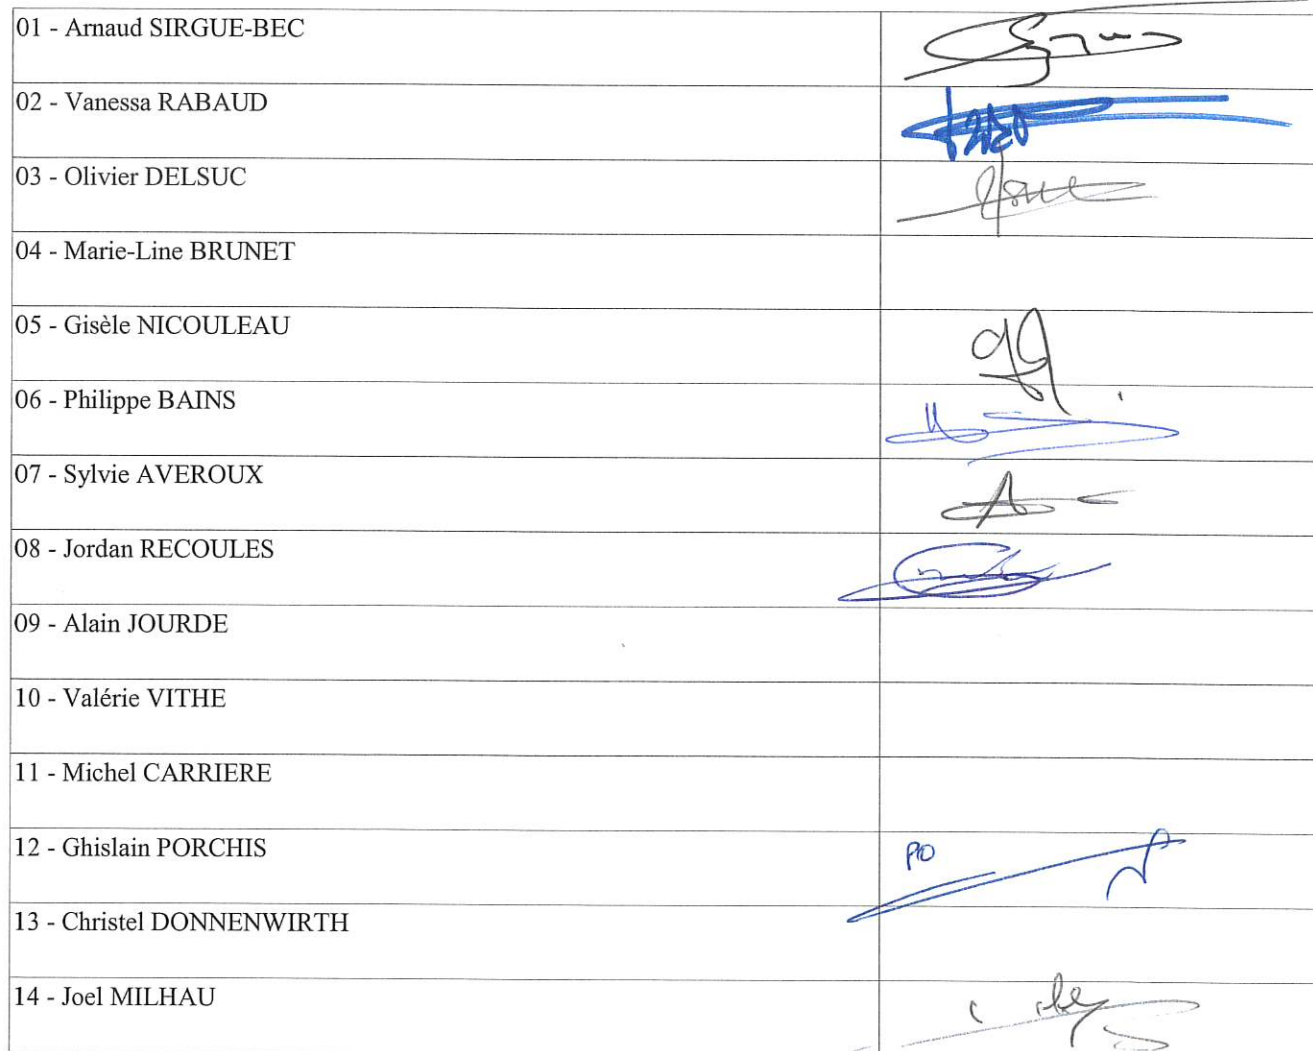 01 - Arnaud SIRGUE-BEC
02 - Vanessa RABAUD
03 - Olivier DELSUC
04 - Marie-Line BRUNET
05 - Gisèle NICOULEAU
06 - Philippe BAINS
07 - Sylvie AVEROUX
08 - Jordan RECOULES
09 - Alain JOURDE
10 - Valérie VITHE
11 - Michel CARRIERE
12 - Ghislain PORCHIS
PO
13 - Christel DONNENWIRTH
14 - Joel MILHAU